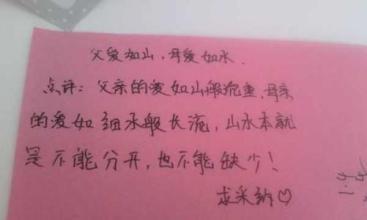 父爱如山，母爱如水.
点评：父亲的爱如山般沉重、母亲
的爱如细水般长流，山水本就
是不能分开，也不能缺少！
求采纳♡